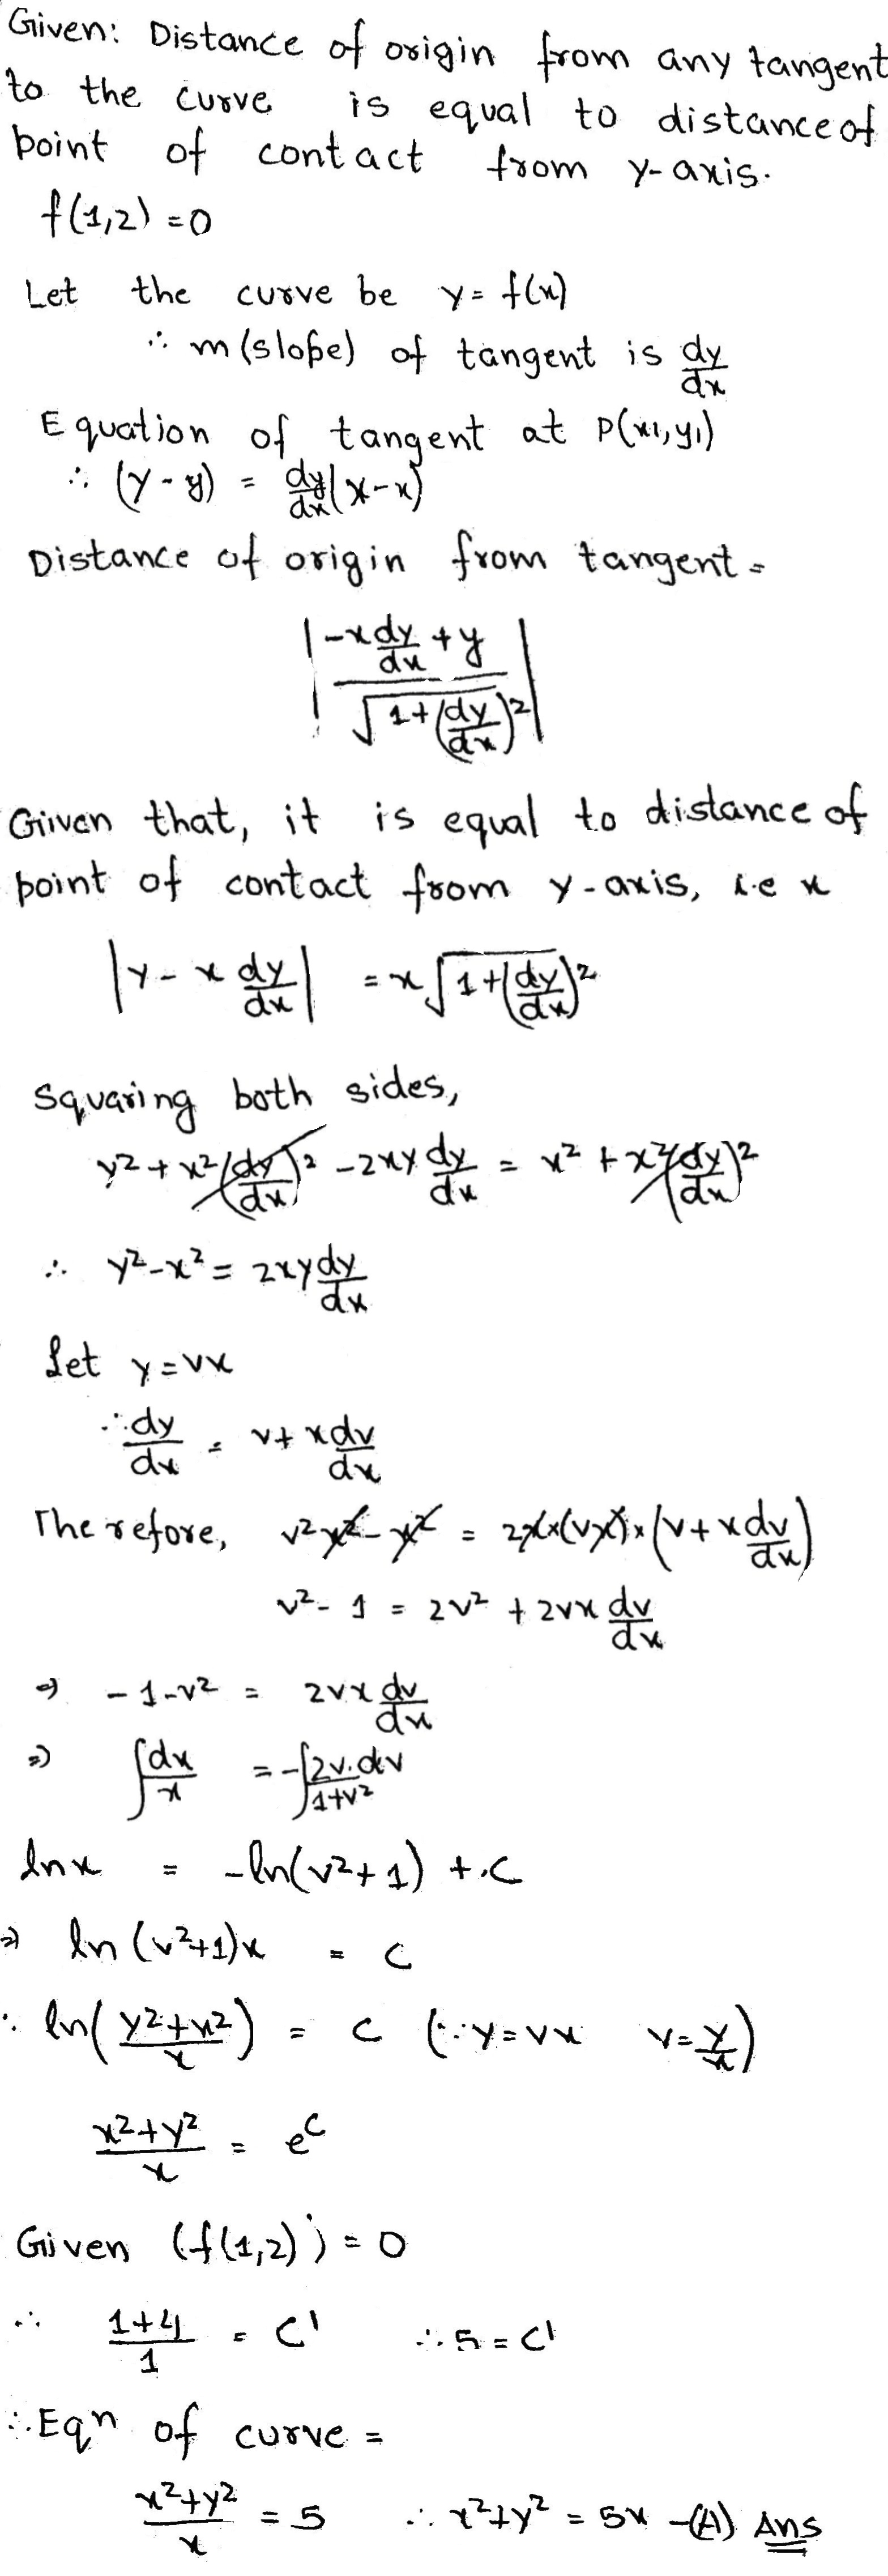 Given: Distance of origin from any tangent
to the curve is equal to distance of
point of contact from y-axis.
f(1,2) = 0
Let the curve be y = f(x)
∴ m (slope) of tangent is dy/dx
Equation of tangent at P(x1, y1)
∴ (Y - y) = dy/dx (X - x)
Distance of origin from tangent =
| (-x dy/dx + y) / √(1 + (dy/dx)²) |
Given that, it is equal to distance of
point of contact from y-axis, i.e x
| y - x dy/dx | = x √(1 + (dy/dx)²)
Squaring both sides,
y² + x² (dy/dx)² - 2xy dy/dx = x² + x² (dy/dx)²
∴ y² - x² = 2xy dy/dx
Let y = vx
∴ dy/dx = v + x dv/dx
Therefore, v²x² - x² = 2x × (vx) × (v + x dv/dx)
v² - 1 = 2v² + 2vx dv/dx
⇒ -1 - v² = 2vx dv/dx
⇒ ∫ dx/x = -∫ 2v.dv/1+v²
ln x = -ln(v² + 1) + C
⇒ ln (v²+1)x = C
∴ ln( (y²+x²)/x ) = C (∵ y = vx v = y/x)
(x²+y²)/x = e^C
Given (f(1,2)) = 0
∴ (1+4)/1 = C' ∴ 5 = C'
∴ Eqn of curve =
(x²+y²)/x = 5 ∴ x²+y² = 5x -(A) Ans